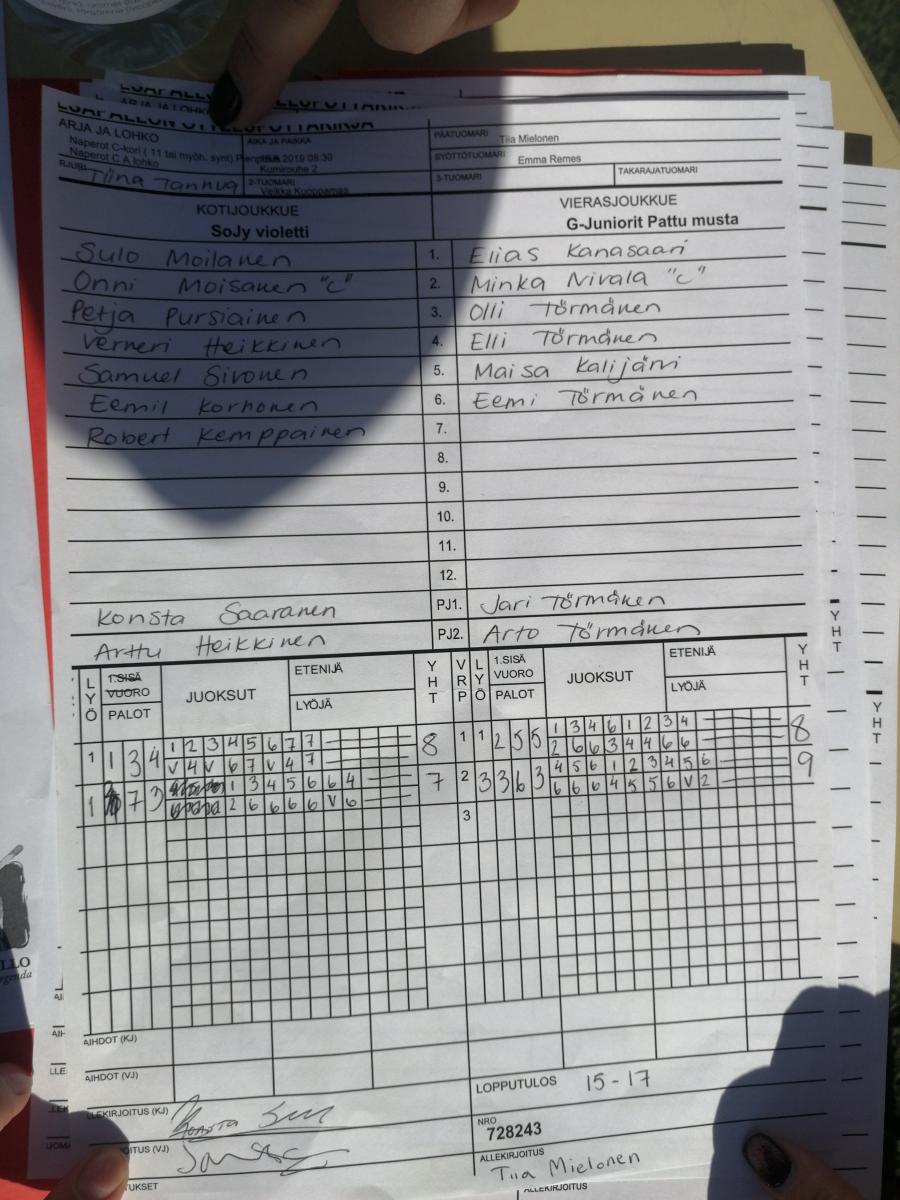 ARJA JA LOHKO
Naperot C-kori ( 11 tai myöh. synt)
Naperot C A lohko
AIKA JA PAIKKA
2019 08:30
Kumirouhe 2
PÄÄTUOMARI Tiia Mielonen
SYÖTTÖTUOMARI Emma Remes
RJURI Tiina Tanhua
2-TUOMARI Veikka Kuoppamaa
3-TUOMARI
TAKARAJATUOMARI
KOTIJOUKKUE VIERASJOUKKUE
SoJy violetti G-Juniorit Pattu musta
Sulo Moilanen 1. Elias Kanasaari
Onni Moisanen "C" 2. Minka Nivala "C"
Petja Pursiainen 3. Olli Törmänen
Verneri Heikkinen 4. Elli Törmänen
Samuel Sivonen 5. Maisa Kalijärvi
Eemil Korhonen 6. Eemi Törmänen
Robert Kemppainen 7.
8.
9.
10.
11.
12.
Konsta Saaranen PJ1. Jari Törmänen
Arttu Heikkinen PJ2. Arto Törmänen
LYÖ 1.SISÄ VUORO PALOT JUOKSUT ETENIJÄ LYÖJÄ YHT VRP LYÖ 1.SISÄ VUORO PALOT JUOKSUT ETENIJÄ LYÖJÄ YHT
1 1 3 4 1 2 3 4 5 6 7 7 8 1 1 2 5 5 1 3 4 6 1 2 3 4 8
V 4 V 6 7 V 4 7 2 6 6 3 4 4 6 6
1 7 3 1 3 4 5 6 6 4 7 2 3 3 6 3 4 5 6 1 2 3 4 5 6 9
2 6 6 6 6 V 6 6 6 6 4 5 5 6 V 2
3
AIHDOT (KJ)
AIHDOT (VJ)
LOPPUTULOS 15-17
LLEKIRJOITUS (KJ)
NRO
728243
OITUS (VJ)
ALLEKIRJOITUS
Tiia Mielonen
TUKSET
ALLEKIRJOITUS
YHT
YHT
LLO
egenda